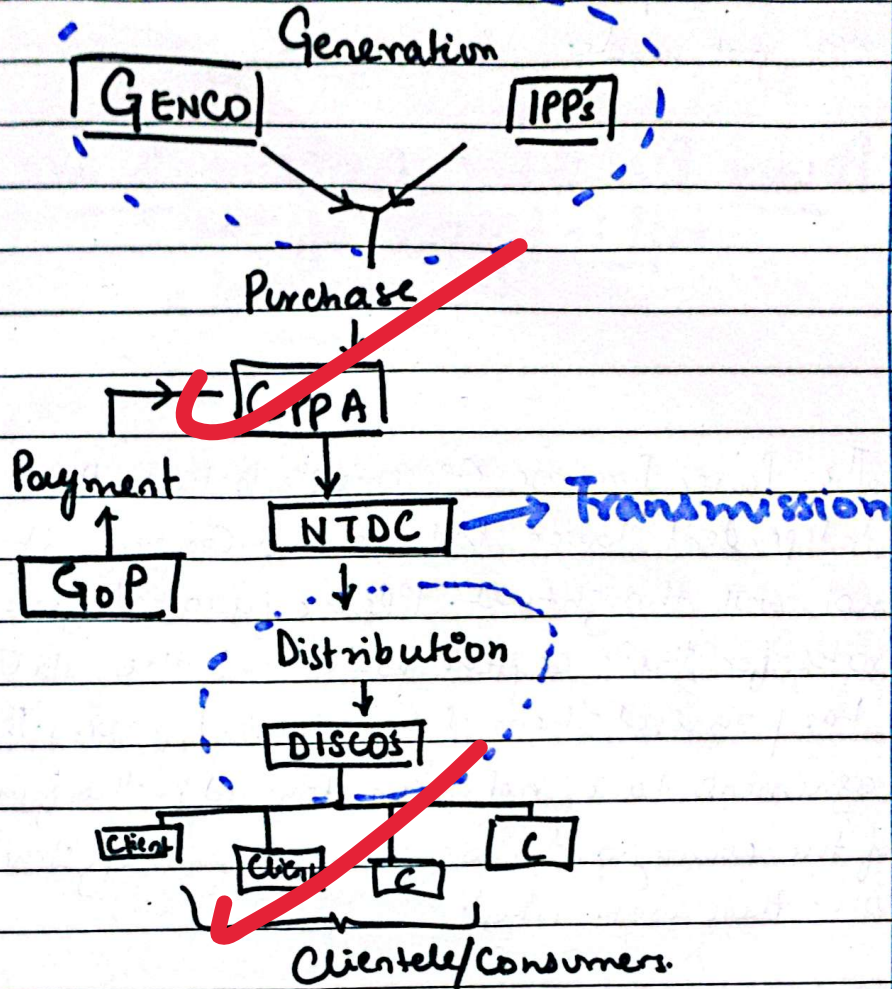 Generation
GENCO
IPP's
Purchase
CPPA
Payment
NTDC → Transmission
GOP
Distribution
DISCO's
Client
Client
C
C
Clientele/Consumers.